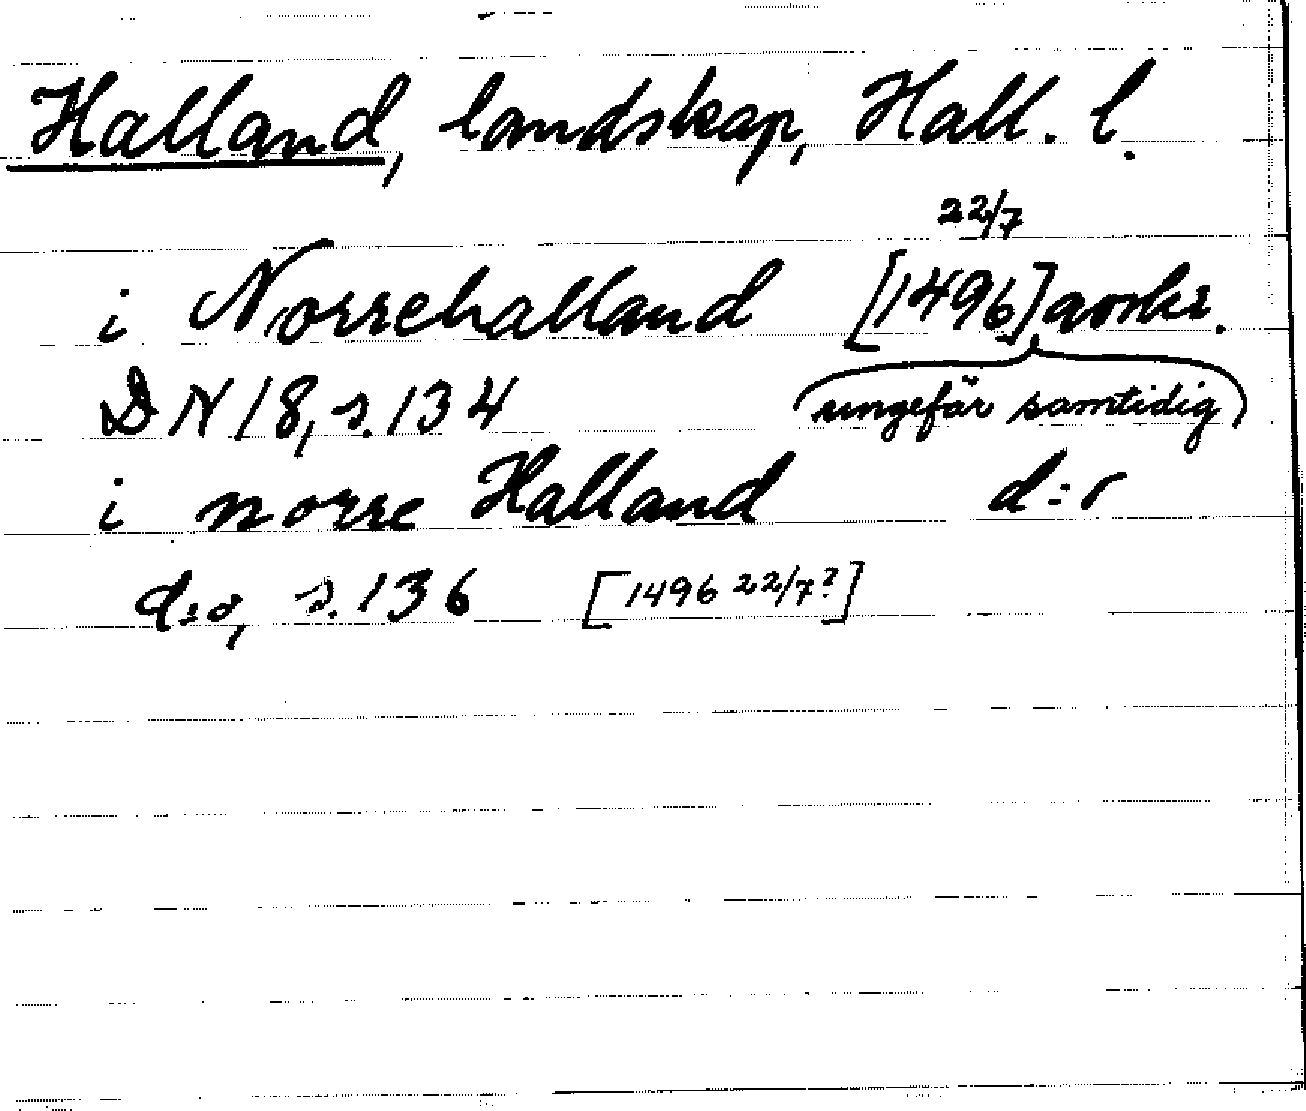 Halland, landskap, Hall. l.
22/7
i Norrehalland [1496] avskr.
DN 18, s. 134 (ungefär samtidig)
i norre Halland d:o
d:o, s. 136 [1496 22/7?]